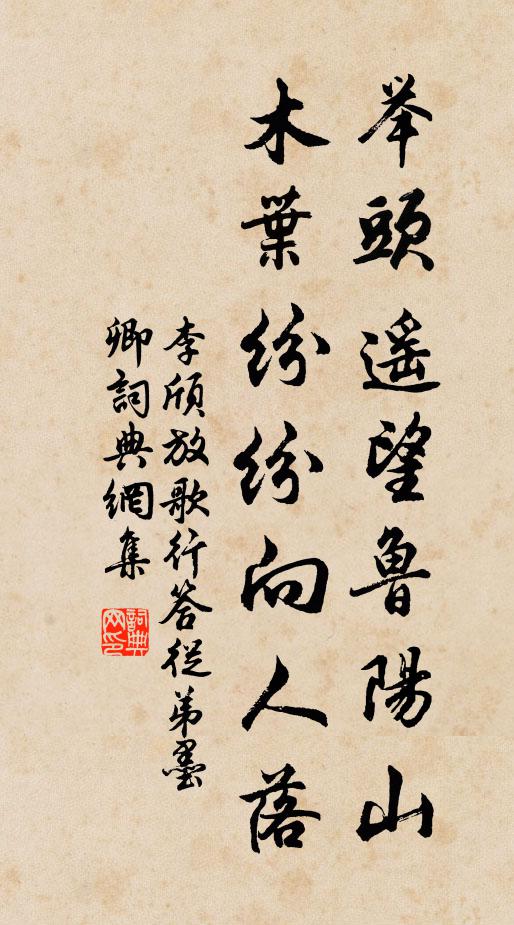 举頭遥望魯陽山
木葉紛紛向人落
李頎放歌行答從弟墨
卿詞典網集
詞典
网印